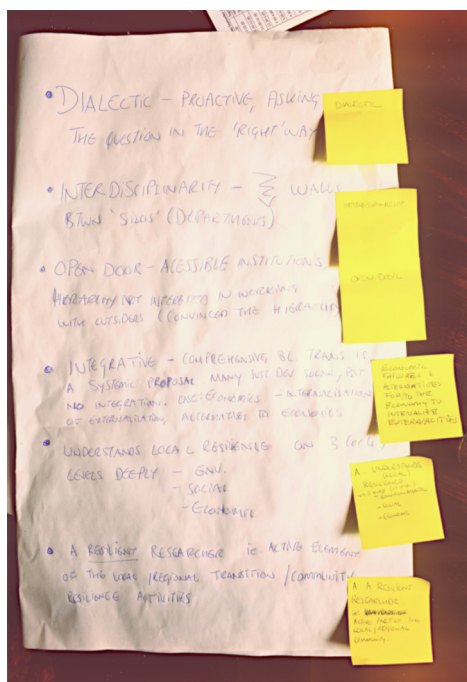 • DIALECTIC - PROACTIVE, ASKING
THE QUESTION IN THE 'RIGHT' WAY
• INTERDISCIPLINARITY - WALLS
BTWN 'SILOS' (DEPARTMENTS)
• OPEN DOOR - ACESSIBLE INSTITUTIONS,
HIERARCHY NOT INTERESTED IN WORKING
WITH OUTSIDERS (CONVINCED THE HIERARCHY)
• INTEGRATIVE - COMPREHENSIVE, BC TRANS. IS
A SYSTEMIC PROPOSAL MANY DEV SOME, BUT
NO INTEGRATION. ECONOMICS - INTERNALISATION
OF EXTERNALITIES, ALTERNATIVES TO ECONOMICS
• UNDERSTANDS LOCAL RESILIENCE ON 3
LEVELS DEEPLY - ENV.
- SOCIAL
- ECONOMIC
• A RESILIENT RESEARCHER ie. ACTIVE ELEMENT
OF THE LOCAL / REGIONAL TRANSITION / COMMUNITY
RESILIENCE ACTIVITIES
DIALECTIC
INTERDISCIPLINARITY
OPEN DOOR
ECONOMIC
ALTERNATIVES
TO THE
ECONOMY TO
INTERNALISE
EXTERNALITIES
A. UNDERSTANDS
LOCAL
RESILIENCE
- SOCIAL
- ECONOMIC
A. A RESILIENT
RESEARCHER
ie.
ACTIVE PART OF THE
LOCAL / REGIONAL
ECONOMY.